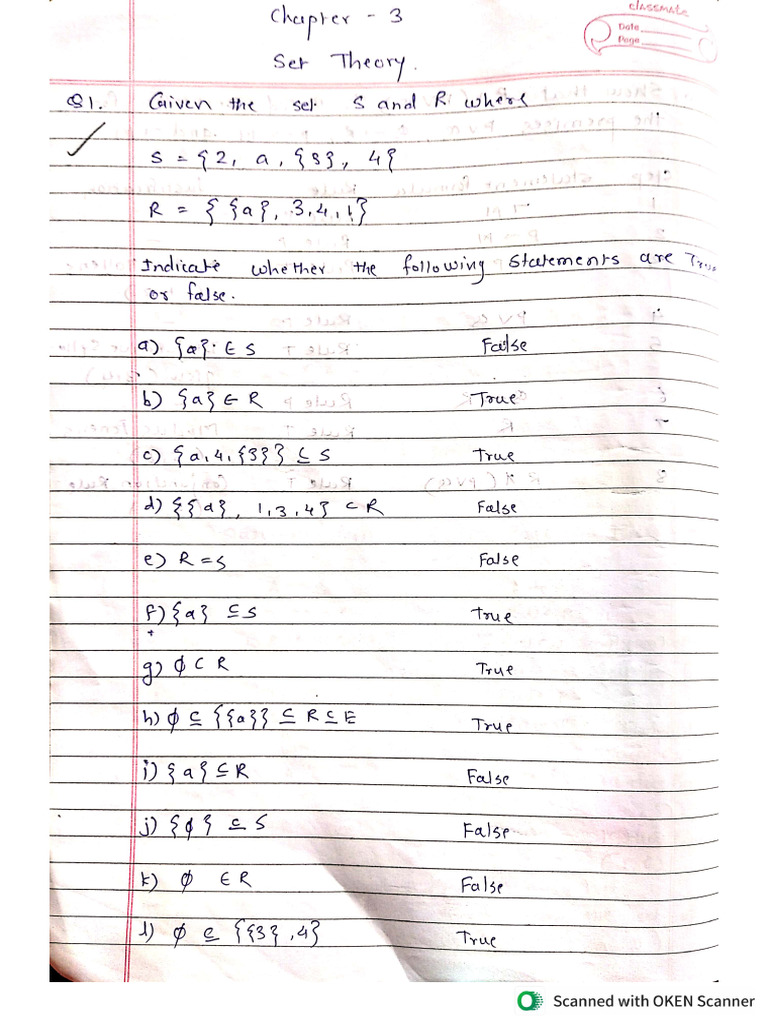 Chapter - 3
classmate
Date
Page
Set Theory.
Q1. Given the set S and R where
S = {2, a, {3}, 4{
R = { {a}, 3,4,1}
Indicate whether the following statements are True
or false.
a) {a} ∈ S False
b) {a} ∈ R True
c) {a,4,{3}} ⊆ S True
d) {{a}, 1,3,4} ⊂ R False
e) R = S False
f) {a} ⊆ S True
g) ϕ ⊂ R True
h) ϕ ⊆ {{a}} ⊆ R ⊆ E True
i) {a} ⊆ R False
j) {ϕ} ⊆ S False
k) ϕ ∈ R False
l) ϕ ⊆ {{3},4} True
Scanned with OKEN Scanner